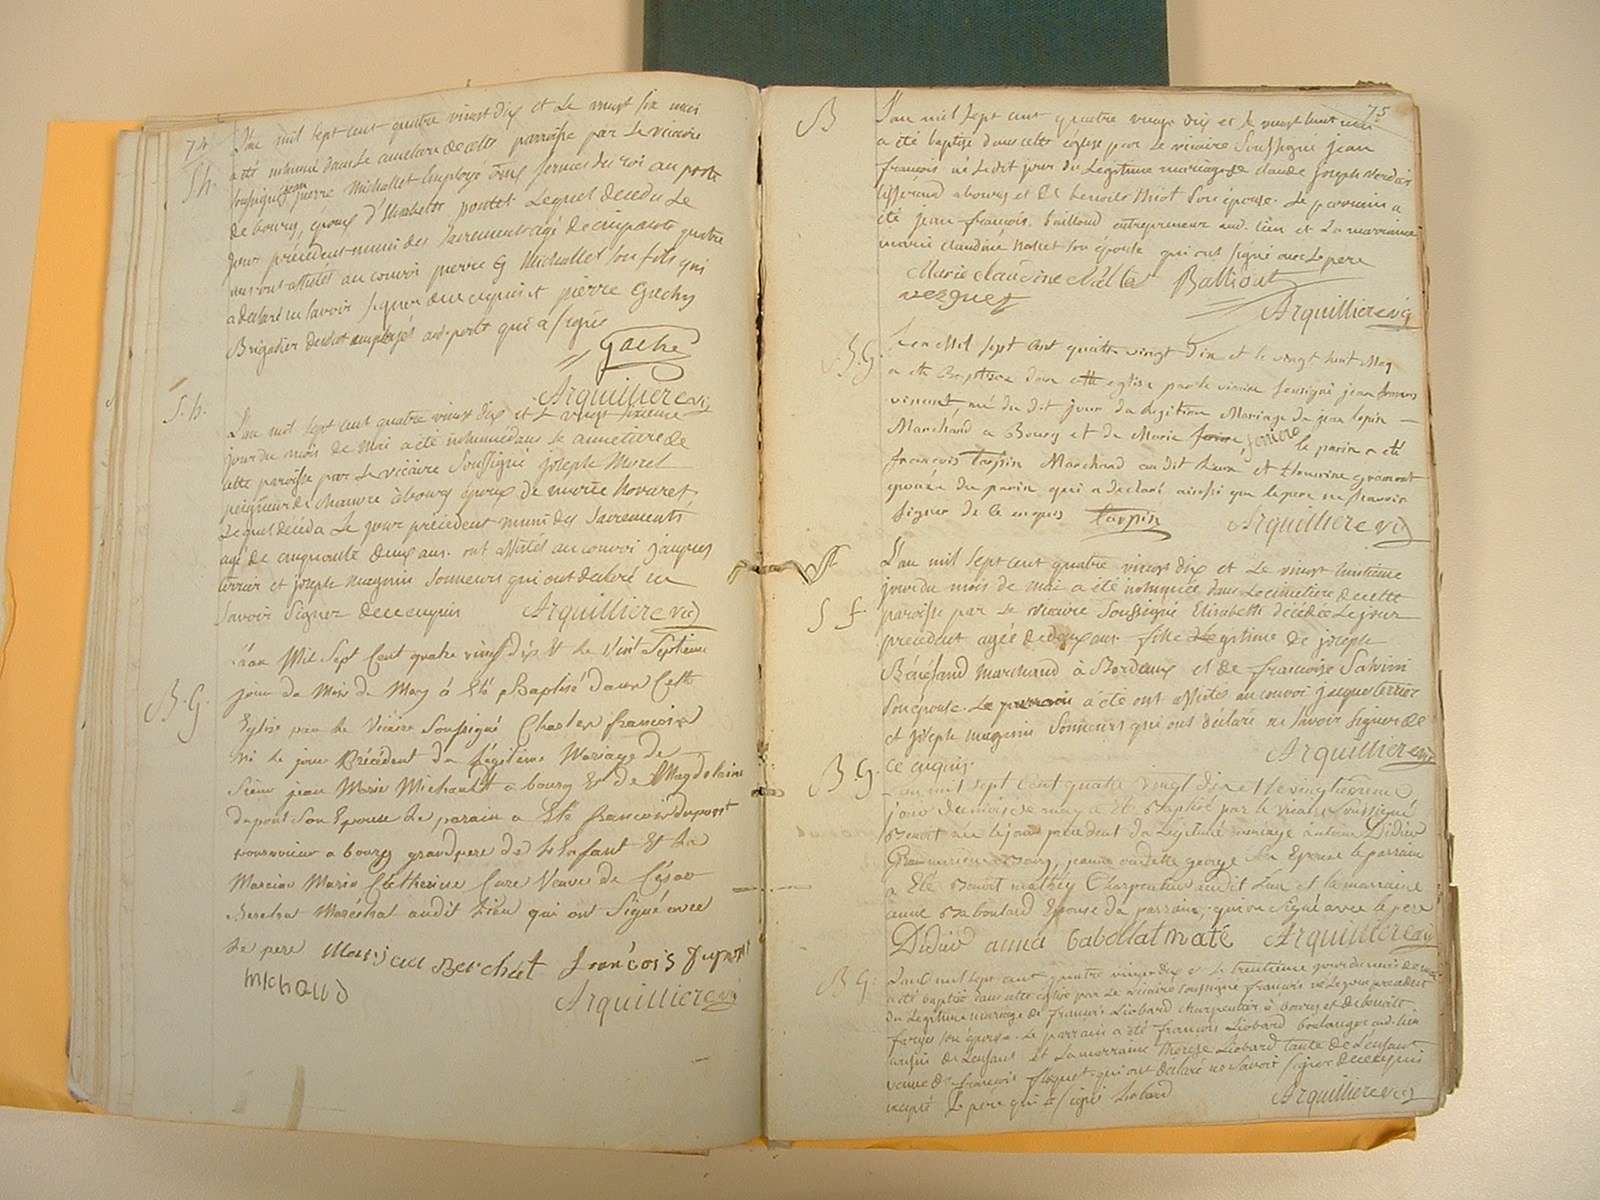 74
S h.
L'an mil sept cent quatre vingt dix et le vingt six mai
a été inhumé dans le cimetiere de cette parroisse par le vicaire
soussigné pierre Michallet employé dans fermes du roi au poste
de bourg, epoux d'Elisabeth pontet lequel deceda le
jour précédent muni des Sacrements agé de cinquante quatre
ans ont assistés au convoi pierre Michallet son fils qui
a déclaré ne savoir signer de ce enquis et pierre Gachy
Brigadier desdits employés aud. poste qui a signé
Gache
Arquilliere vic
S. h.
L'an mil sept cent quatre vingt dix et le vingt sixieme
jour du mois de mai a été inhumé dans le cimetiere de
cette paroisse par le vicaire soussigné joseph Morel
peigneur de chanvre à bourg époux de marie Novaret
lequel déceda le jour précédent muni des Sacrements
agé de cinquante deux ans. ont assistés au convoi jacques
terrier et joseph mugnier Sonneurs qui ont declaré ne
savoir signer de ce enquis Arquilliere vic
B. G.
L'an Mil Sept Cent quatre vingt dix Et le Vint Septieme
jour du Mois de May à Eté Baptisé dans Cette
Eglise par le Vicaire Soussigné Charles francois
né le jour Précédent du Légitime Mariage de
Sieur jean Marie Michault a bourg Et de Magdelaine
dupont Son Epouse le parain a Eté francois dupont
a bourg grandpere de l'Enfant Et la
Maraine Marie Catherine Cure Veuve de César
Berchut Maréchal audit Lieu qui ont Signé avec
le pere Berchut francois dupont
Michaud
Arquilliere vic
75
B
L'an mil sept cent quatre vingt dix et le vingt huit mai
a été baptisé dans cette église par le vicaire soussigné jean
françois né ledit jour du légitime mariage de claude joseph
tisserand a bourg et de benoite Miot son épouse. Le parrain a
été jean françois Bailloud entrepreneur aud. lieu et La marraine
marie claudine son épouse qui ont signé avec le pere
Marie claudine
Arquilliere vic
B. G.
L'an Mil sept Cent quatre vingt Dix et le vingt huit May
a ete Baptisé dans cette eglise par le vicaire soussigné jean francois
vincent, né du dit jour du legitime Mariage de jean
Marchand a Bourg et de Marie le parin a été
francois tarpin Marchand au dit lieu et
epouse du parin qui a declaré ainsi que le pere ne savoir
signer de ce enquis tarpin Arquilliere vic
S f.
L'an mil sept cent quatre vingt dix et Le vingt huitieme
jour du mois de mai a été inhumée dans Le cimetiere de cette
paroisse par Le vicaire Soussigné Elisabeth décédée Le jour
precedent agée de deux ans fille Legitime de joseph
marchand à Bordeaux et de francoise Salvini
son épouse. Le parrain a été ont assistés au convoi jaque terrier
et joseph mugnier Sonneurs qui ont déclaré ne Savoir Signer de
ce enquis. Arquilliere vic
B. G.
L'an mil sept Cent quatre vingt dix et le vingt
jour du mois de may a Eté Baptisé par le vicaire soussigné
Benoit né le jour precedent du Legitime mariage Didier
a Bourg, jeanne George Son Epouse le parrain
a Eté Benoit Charpentier audit lieu et la marraine
anne Epouse du parrain, qui on signé avec le pere
Didier anna Arquilliere vic
B G.
L'an mil sept cent quatre vingt dix et le trentieme jour du mois de mai
a été baptisé dans cette église par Le vicaire soussigné francois né Le jour precedent
du Légitime mariage de francois Liobard charpentier à bourg et de benoite
farges son épouse. Le parrain a été francois Liobard boulanger aud. lieu
cousin de L'enfant et La marraine therese Liobard tante de L'enfant
veuve de francois qui ont declaré ne Savoir Signer de ce enquis
excepté Le pere qui a signé Liobard Arquilliere vic